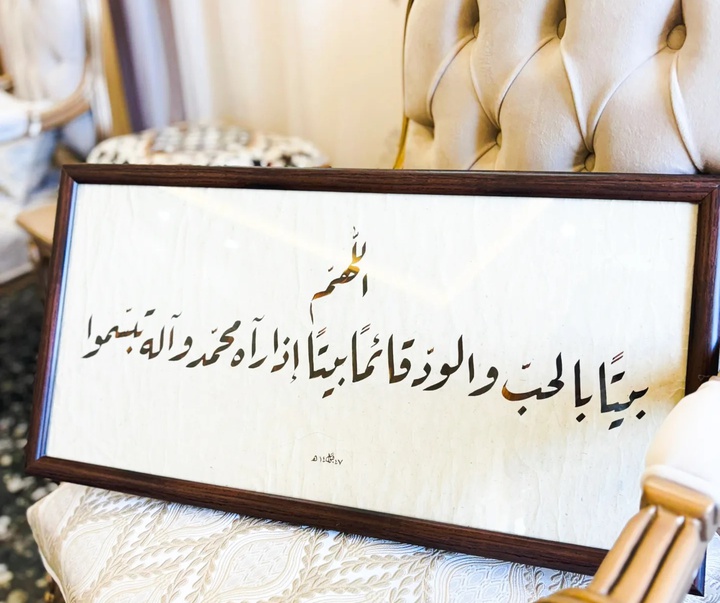 اللّٰهمّ
بيتًا بالحبّ والودّ قائمًا بيتًا إذا رآه محمّد وآله تبسّموا